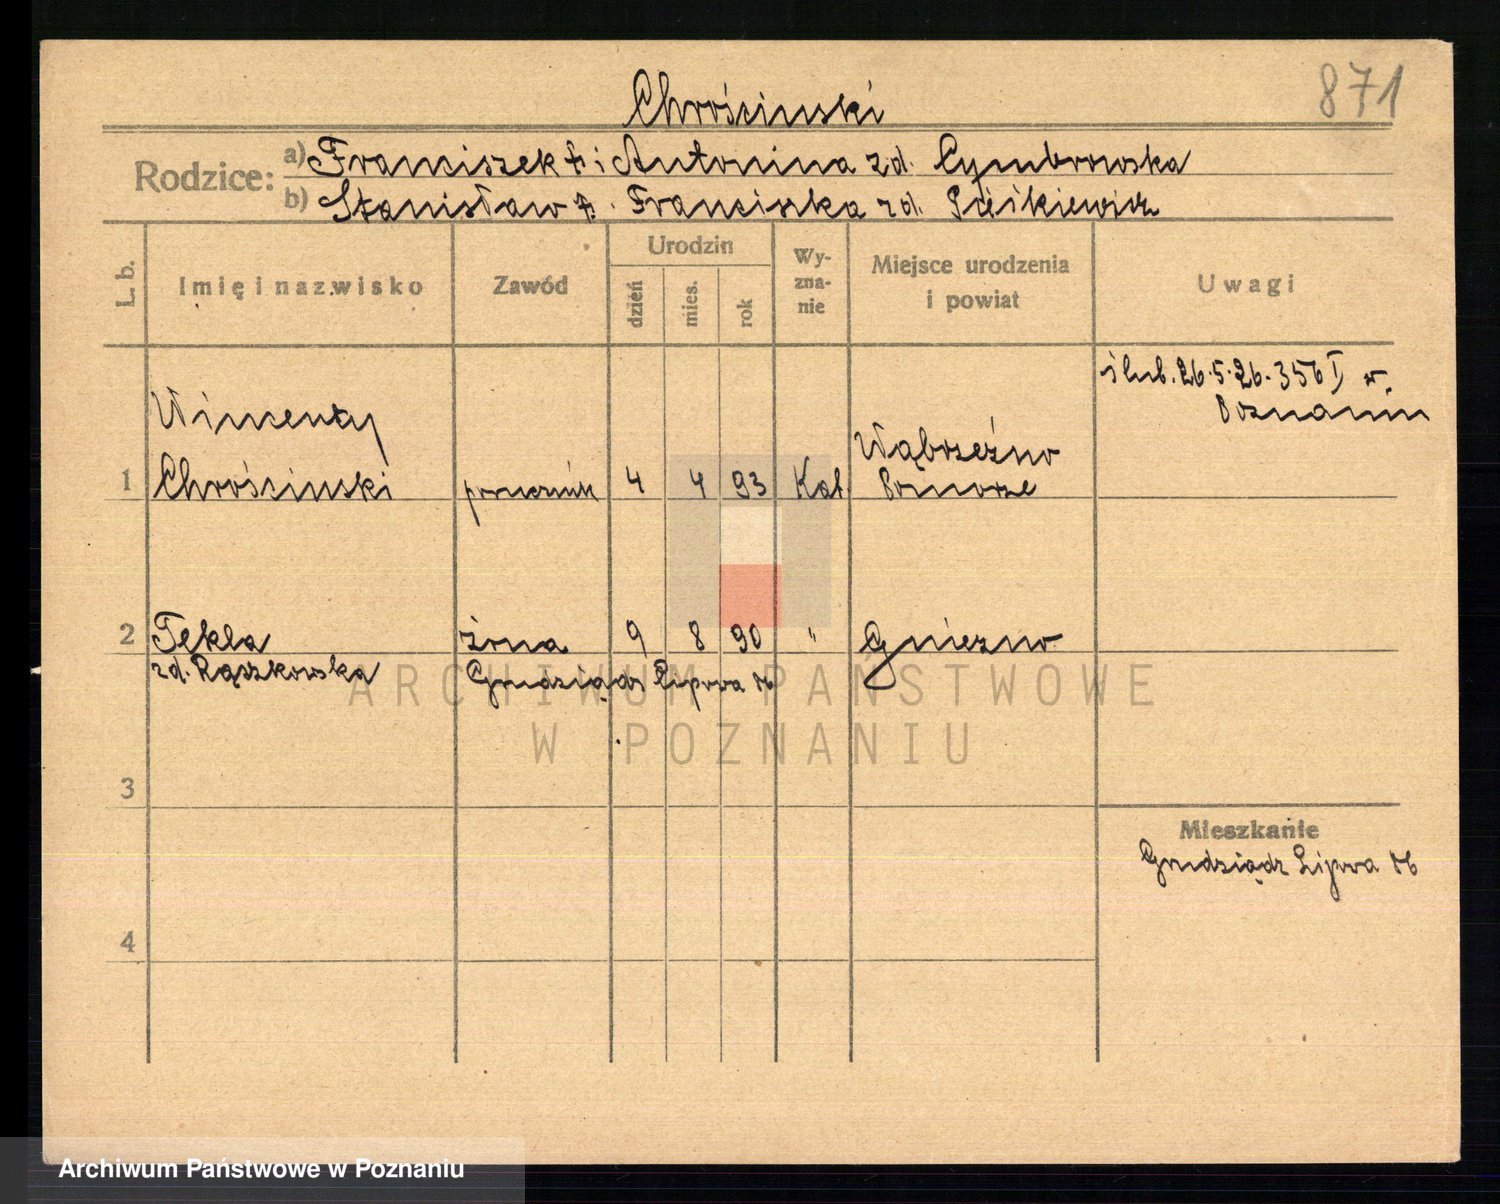 871
Chrościnski
Rodzice: a) Franciszek i Antonina zd. Cymbrowska
b) Stanisław Franciszka zd.
L. b. Imię i nazwisko Zawód Urodzin dzień mies. rok Wy-zna-nie Miejsce urodzenia i powiat Uwagi
ślub. 26.5.26. 356 I w
Poznaniu
Wincenty Wąbrzeźno
1 Chrościnski porucznik 4 4 93 Kat Pomorze
2 Tekla żona 9 8 90 " Gniezno
zd. Rączkowska Grudziądz Lipowa
ARCHIWUM PAŃSTWOWE
W POZNANIU
3
Mieszkanie
Grudziądz Lipowa
4
Archiwum Państwowe w Poznaniu